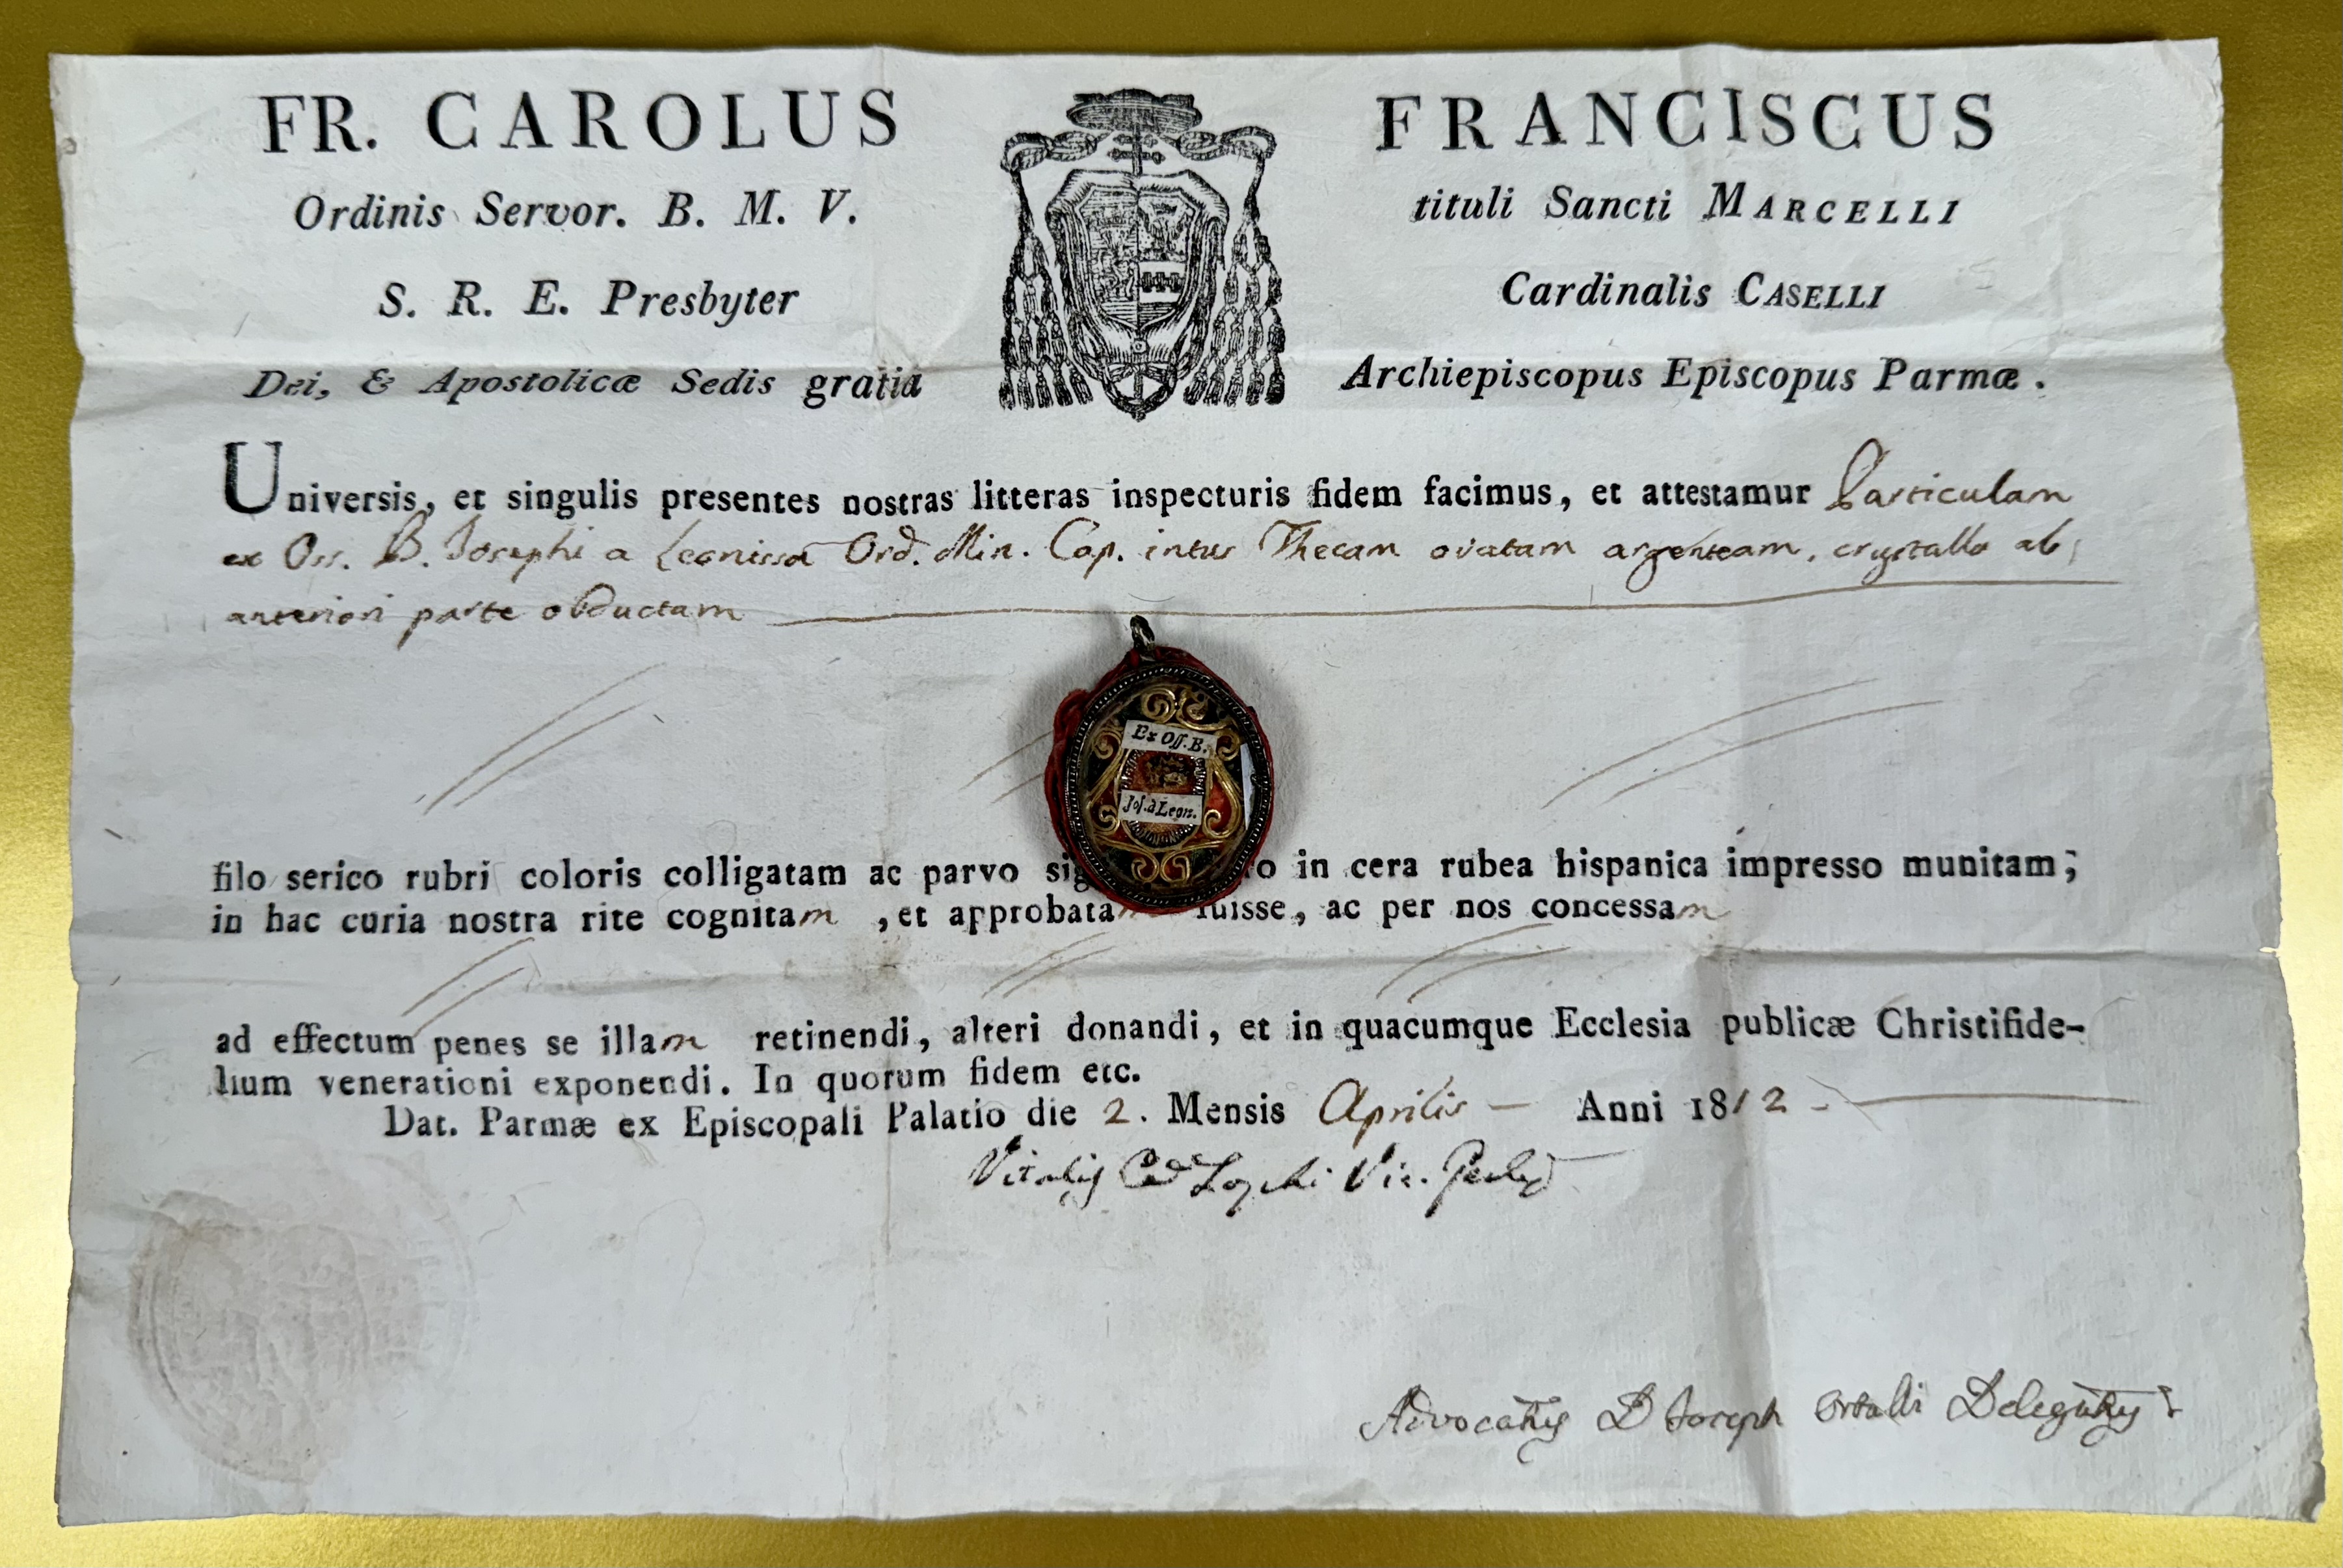 FR. CAROLUS FRANCISCUS
Ordinis Servor. B. M. V. tituli Sancti MARCELLI
S. R. E. Presbyter Cardinalis CASELLI
Dei, & Apostolicæ Sedis gratia Archiepiscopus Episcopus Parmæ.
Universis, et singulis presentes nostras litteras inspecturis fidem facimus, et attestamur Particulam
ex Oss. B. Josephi a Leonissa Ord. Min. Cap. intus Thecam ovatam argenteam, crystallo ab
anteriori parte obductam
Ex Oss. B.
Jos. à Leon.
filo serico rubri coloris colligatam ac parvo in cera rubea hispanica impresso munitam;
in hac curia nostra rite cognitam, et approbatam fuisse, ac per nos concessam
ad effectum penes se illam retinendi, alteri donandi, et in quacumque Ecclesia publicæ Christifide-
lium venerationi exponendi. In quorum fidem etc.
Dat. Parmæ ex Episcopali Palatio die 2. Mensis Aprilis — Anni 1812 -
Vitalis Vic.
Advocatus D Joseph Ortalli Delegatus